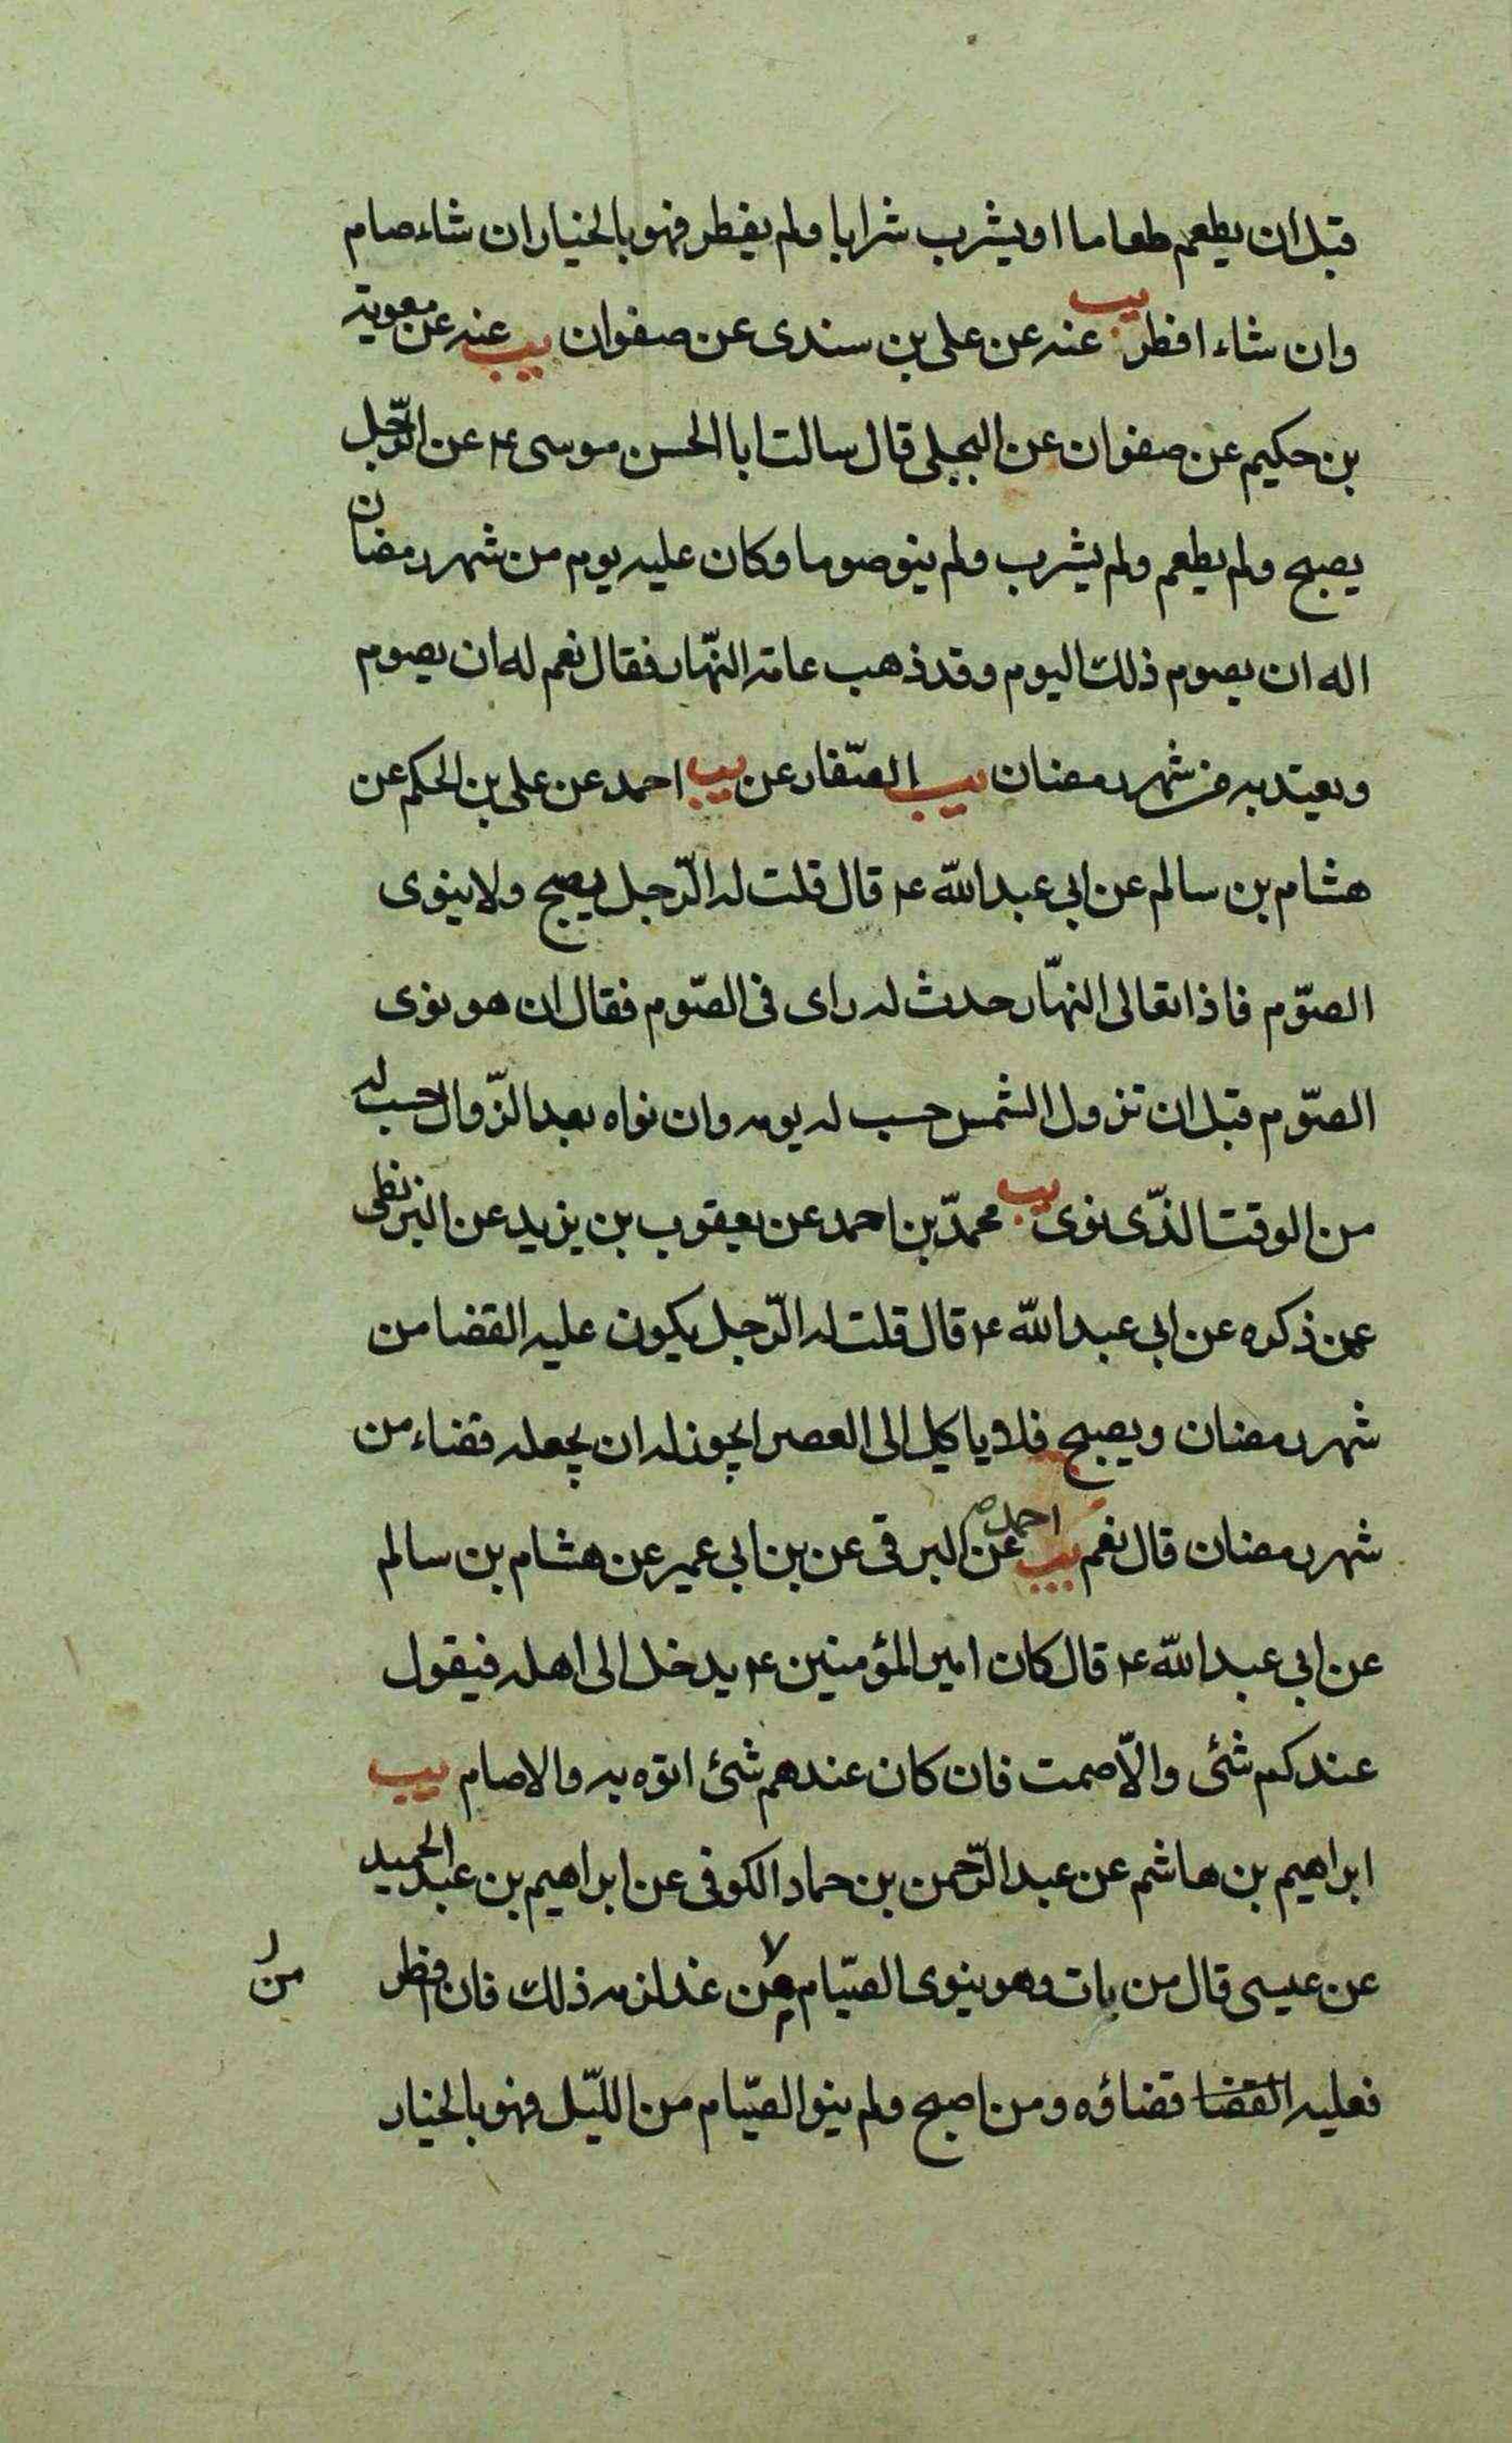 قبل ان يطعم طعاما او يشرب شرابا ولم يفطر فهو بالخيار ان شاء صام
وان شاء افطر يب عنه عن على بن سندى عن صفوان يب عنه عن معوية
بن حكيم عن صفوان عن البجلى قال سالت ابا الحسن موسى ع عن الرّجل
يصبح ولم يطعم ولم يشرب ولم ينو صوما وكان عليه يوم من شهر رمضان
اله ان يصوم ذلك اليوم وقد ذهب عامة النّهار فقال نعم له ان يصوم
ويعتد به من شهر رمضان يب الصّفار عن يب احمد عن على بن الحكم عن
هشام بن سالم عن ابى عبد الله ع قال قلت له الرّجل يصبح ولا ينوى
الصّوم فاذا تعالى النهّار حدث له راى فى الصّوم فقال ان هو نوى
الصّوم قبل ان تزول الشمس حسب له يومه وان نواه بعد الزّوال حسب له
من الوقت الذّى نوى يب محمّد بن احمد عن يعقوب بن يزيد عن البزنطى
عمن ذكره عن ابى عبد الله ع قال قلت له الرّجل يكون عليه القضا من
شهر رمضان ويصبح فلا ياكل الى العصر ايجوز له ان يجعله قضاء من
شهر رمضان قال نعم يب احمد عن البرقى عن بن ابى عمير عن هشام بن سالم
عن ابى عبد الله ع قال كان امير المؤمنين ع يدخل الى اهله فيقول
عندكم شئى والّا صمت فان كان عندهم شئ اتوه به والا صام يب
ابراهيم بن هاشم عن عبد الرّحمن بن حماد الكوفى عن ابراهيم بن عبد الحميد
عن عيسى قال من بات وهو ينوى الصّيام من غد لزمه ذلك فان افطر
من
فعليه القضا قضاؤه ومن اصبح ولم ينو الصّيام من اللّيل فهو بالخيار